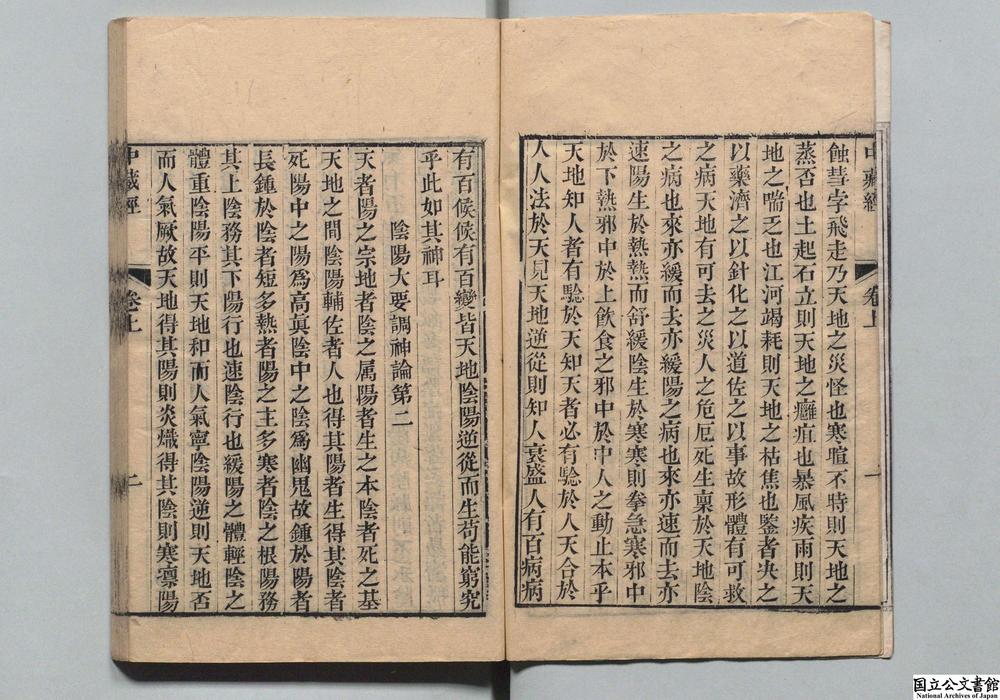 中藏經 卷上 一
蝕彗孛飛走乃天地之災怪也寒暄不時則天地之
蒸否也土起石立則天地之癰疽也暴風疾雨則天
地之喘乏也江河竭耗則天地之枯焦也鑒者決之
以藥濟之以針化之以道佐之以事故形體有可救
之病天地有可去之災人之危厄死生稟於天地陰
之病也來亦緩而去亦緩陽之病也來亦速而去亦
速陽生於熱熱而舒緩陰生於寒寒則拳急寒邪中
於下熱邪中於上飲食之邪中於中人之動止本乎
天地知人者有驗於天知天者必有驗於人天合於
人人法於天見天地逆從則知人衰盛人有百病病
有百候候有百變皆天地陰陽逆從而生苟能窮究
乎此如其神耳
陰陽大要調神論第二
天者陽之宗地者陰之属陽者生之本陰者死之基
天地之間陰陽輔佐者人也得其陽者生得其陰者
死陽中之陽爲高眞陰中之陰爲幽鬼故鍾於陽者
長鍾於陰者短多熱者陽之主多寒者陰之根陽務
其上陰務其下陽行也速陰行也緩陽之體輕陰之
體重陰陽平則天地和而人氣寧陰陽逆則天地否
而人氣厥故天地得其陽則炎熾得其陰則寒凛陽
中藏經 卷上 二
国立公文書館
National Archives of Japan